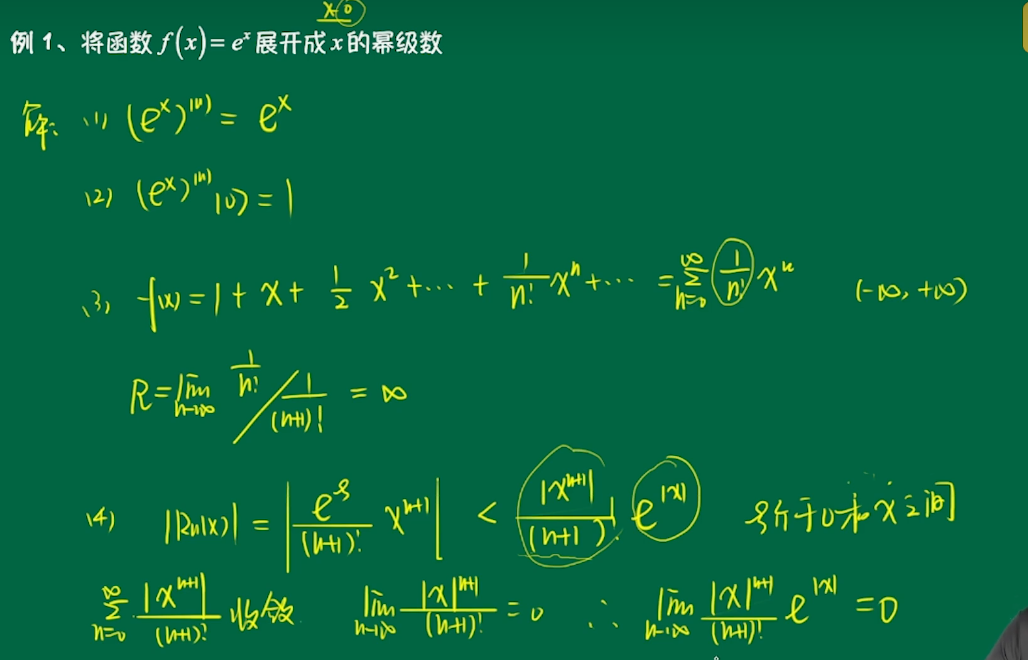 x=0
例 1、将函数 f(x)= eˣ 展开成 x 的幂级数
解: (1) (eˣ)⁽ⁿ⁾ = eˣ
(2) (eˣ)⁽ⁿ⁾(0) = 1
(3) f(x) = 1 + x + 1/2 x² + ⋯ + 1/n! xⁿ + ⋯ = ∑_{n=0}^{∞} 1/n! xⁿ (-∞, +∞)
R = lim_{n→∞} 1/n! / 1/(n+1)! = ∞
(4) |Rn(x)| = | e^ξ/(n+1)! xⁿ⁺¹ | < |xⁿ⁺¹|/(n+1)! e^|x| ξ介于0和x之间
∑_{n=0}^{∞} |xⁿ⁺¹|/(n+1)! 收敛 lim_{n→∞} |x|ⁿ⁺¹/(n+1)! = 0 ∴ lim_{n→∞} |x|ⁿ⁺¹/(n+1)! e^|x| = 0